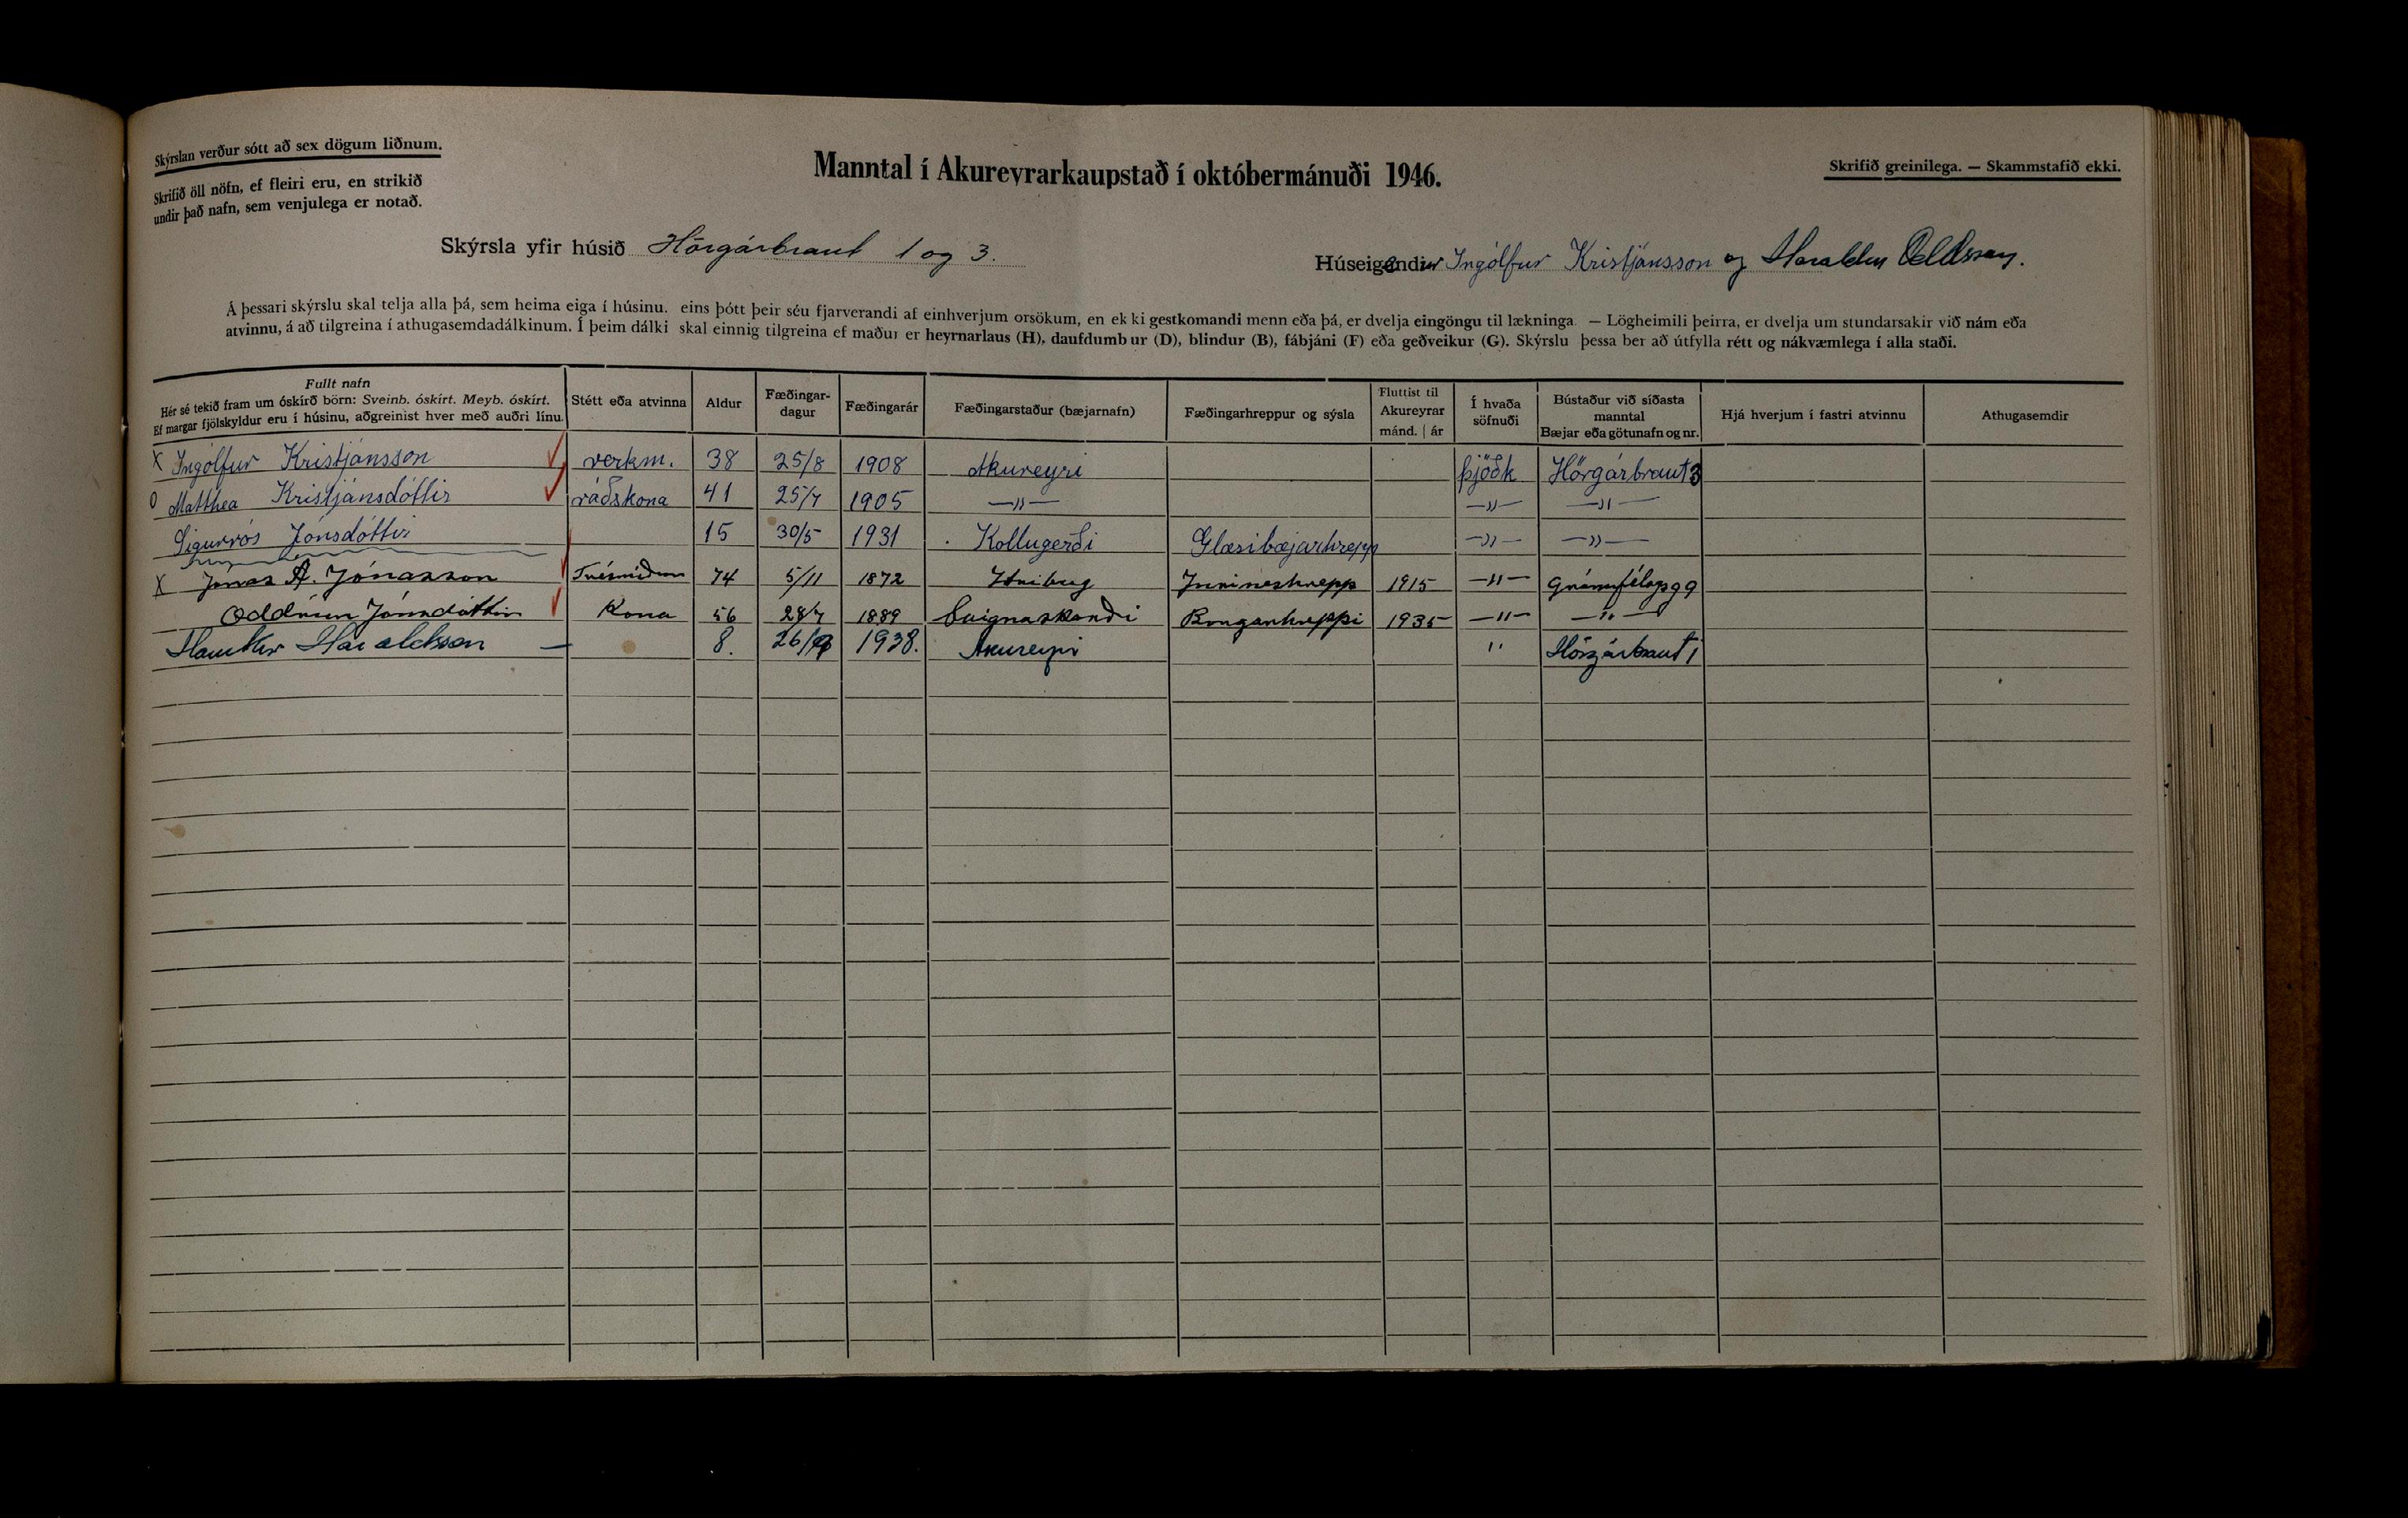 Skýrslan verður sótt að sex dögum liðnum.
Skrifið öll nöfn, ef fleiri eru, en strikið
undir það nafn, sem venjulega er notað.
Manntal í Akureyrarkaupstað í októbermánuði 1946.
Skrifið greinilega. — Skammstafið ekki.
Skýrsla yfir húsið Hörgárbraut 1 og 3.
Húseigendur Ingólfur Kristjánsson og Haraldur Oddsson.
Á þessari skýrslu skal telja alla þá, sem heima eiga í húsinu. eins þótt þeir séu fjarverandi af einhverjum orsökum, en ekki gestkomandi menn eða þá, er dvelja eingöngu til lækninga. — Lögheimili þeirra, er dvelja um stundarsakir við nám eða
atvinnu, á að tilgreina í athugasemdadálkinum. Í þeim dálki skal einnig tilgreina ef maður er heyrnarlaus (H), daufdumbur (D), blindur (B), fábjáni (F) eða geðveikur (G). Skýrslu þessa ber að útfylla rétt og nákvæmlega í alla staði.
Fullt nafn
Hér sé tekið fram um óskírð börn: Sveinb. óskírt. Meyb. óskírt.
Ef margar fjölskyldur eru í húsinu, aðgreinist hver með auðri línu.
Stétt eða atvinna
Aldur
Fæðingar-
dagur
Fæðingarár
Fæðingarstaður (bæjarnafn)
Fæðingarhreppur og sýsla
Fluttist til
Akureyrar
mánd. | ár
Í hvaða
söfnuði
Bústaður við síðasta
manntal
Bæjar eða götunafn og nr.
Hjá hverjum í fastri atvinnu
Athugasemdir
X Ingólfur Kristjánsson verkm. 38 25/8 1908 Akureyri þjóðk Hörgárbraut 3
0 Matthea Kristjánsdóttir ráðskona 41 25/7 1905 —〃— —〃— —〃—
Sigurrós Jónsdóttir 15 30/5 1931 Kollugerði Glæsibæjarhrepp —〃— —〃—
X Jónas A. Jónasson Trésmiður 74 5/11 1872 1915 —〃— Gránufélagsg 9
Oddrún Jónsdóttir Kona 56 28/7 1889 1935 —〃— —〃—
Haukur Haraldsson — 8. 1938. Akureyri 〃 Hörgárbraut 1